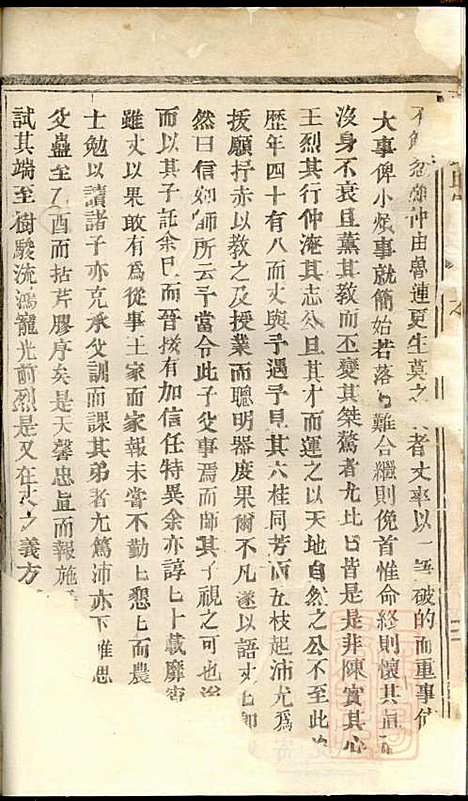 仲由魯連更生莫之者丈率以一言破的而重事
大事俾小煩事就簡始若落難合繼則俛首惟命終則懷其直
沒身不衰且薰其教而丕變其桀驁者尤比日皆是是非陳實其心
王烈其行仲淹其志公旦其才而運之以天地自然之公不至此
歷年四十有八而丈與予遇予見其六桂同芳而五枝起沛尤爲
援願抒赤以教之及授業而聰明器度果爾不凡遂以語丈上
然曰信如師所云予當令此子父事焉而師其子視之可也
而以其子託余已而晉接有加信任特異余亦諄上十載靡
雖丈以果敢有爲從事王家而家報未嘗不勤上懇上而農
士勉以讀諸子亦克承父訓而課其弟者尤篤沛亦下惟思
父蠱至乙酉而拈芹膠序矣是天馨忠眞而報施
試其端至樹駿流鴻寵光前烈是又在丈之義方
二